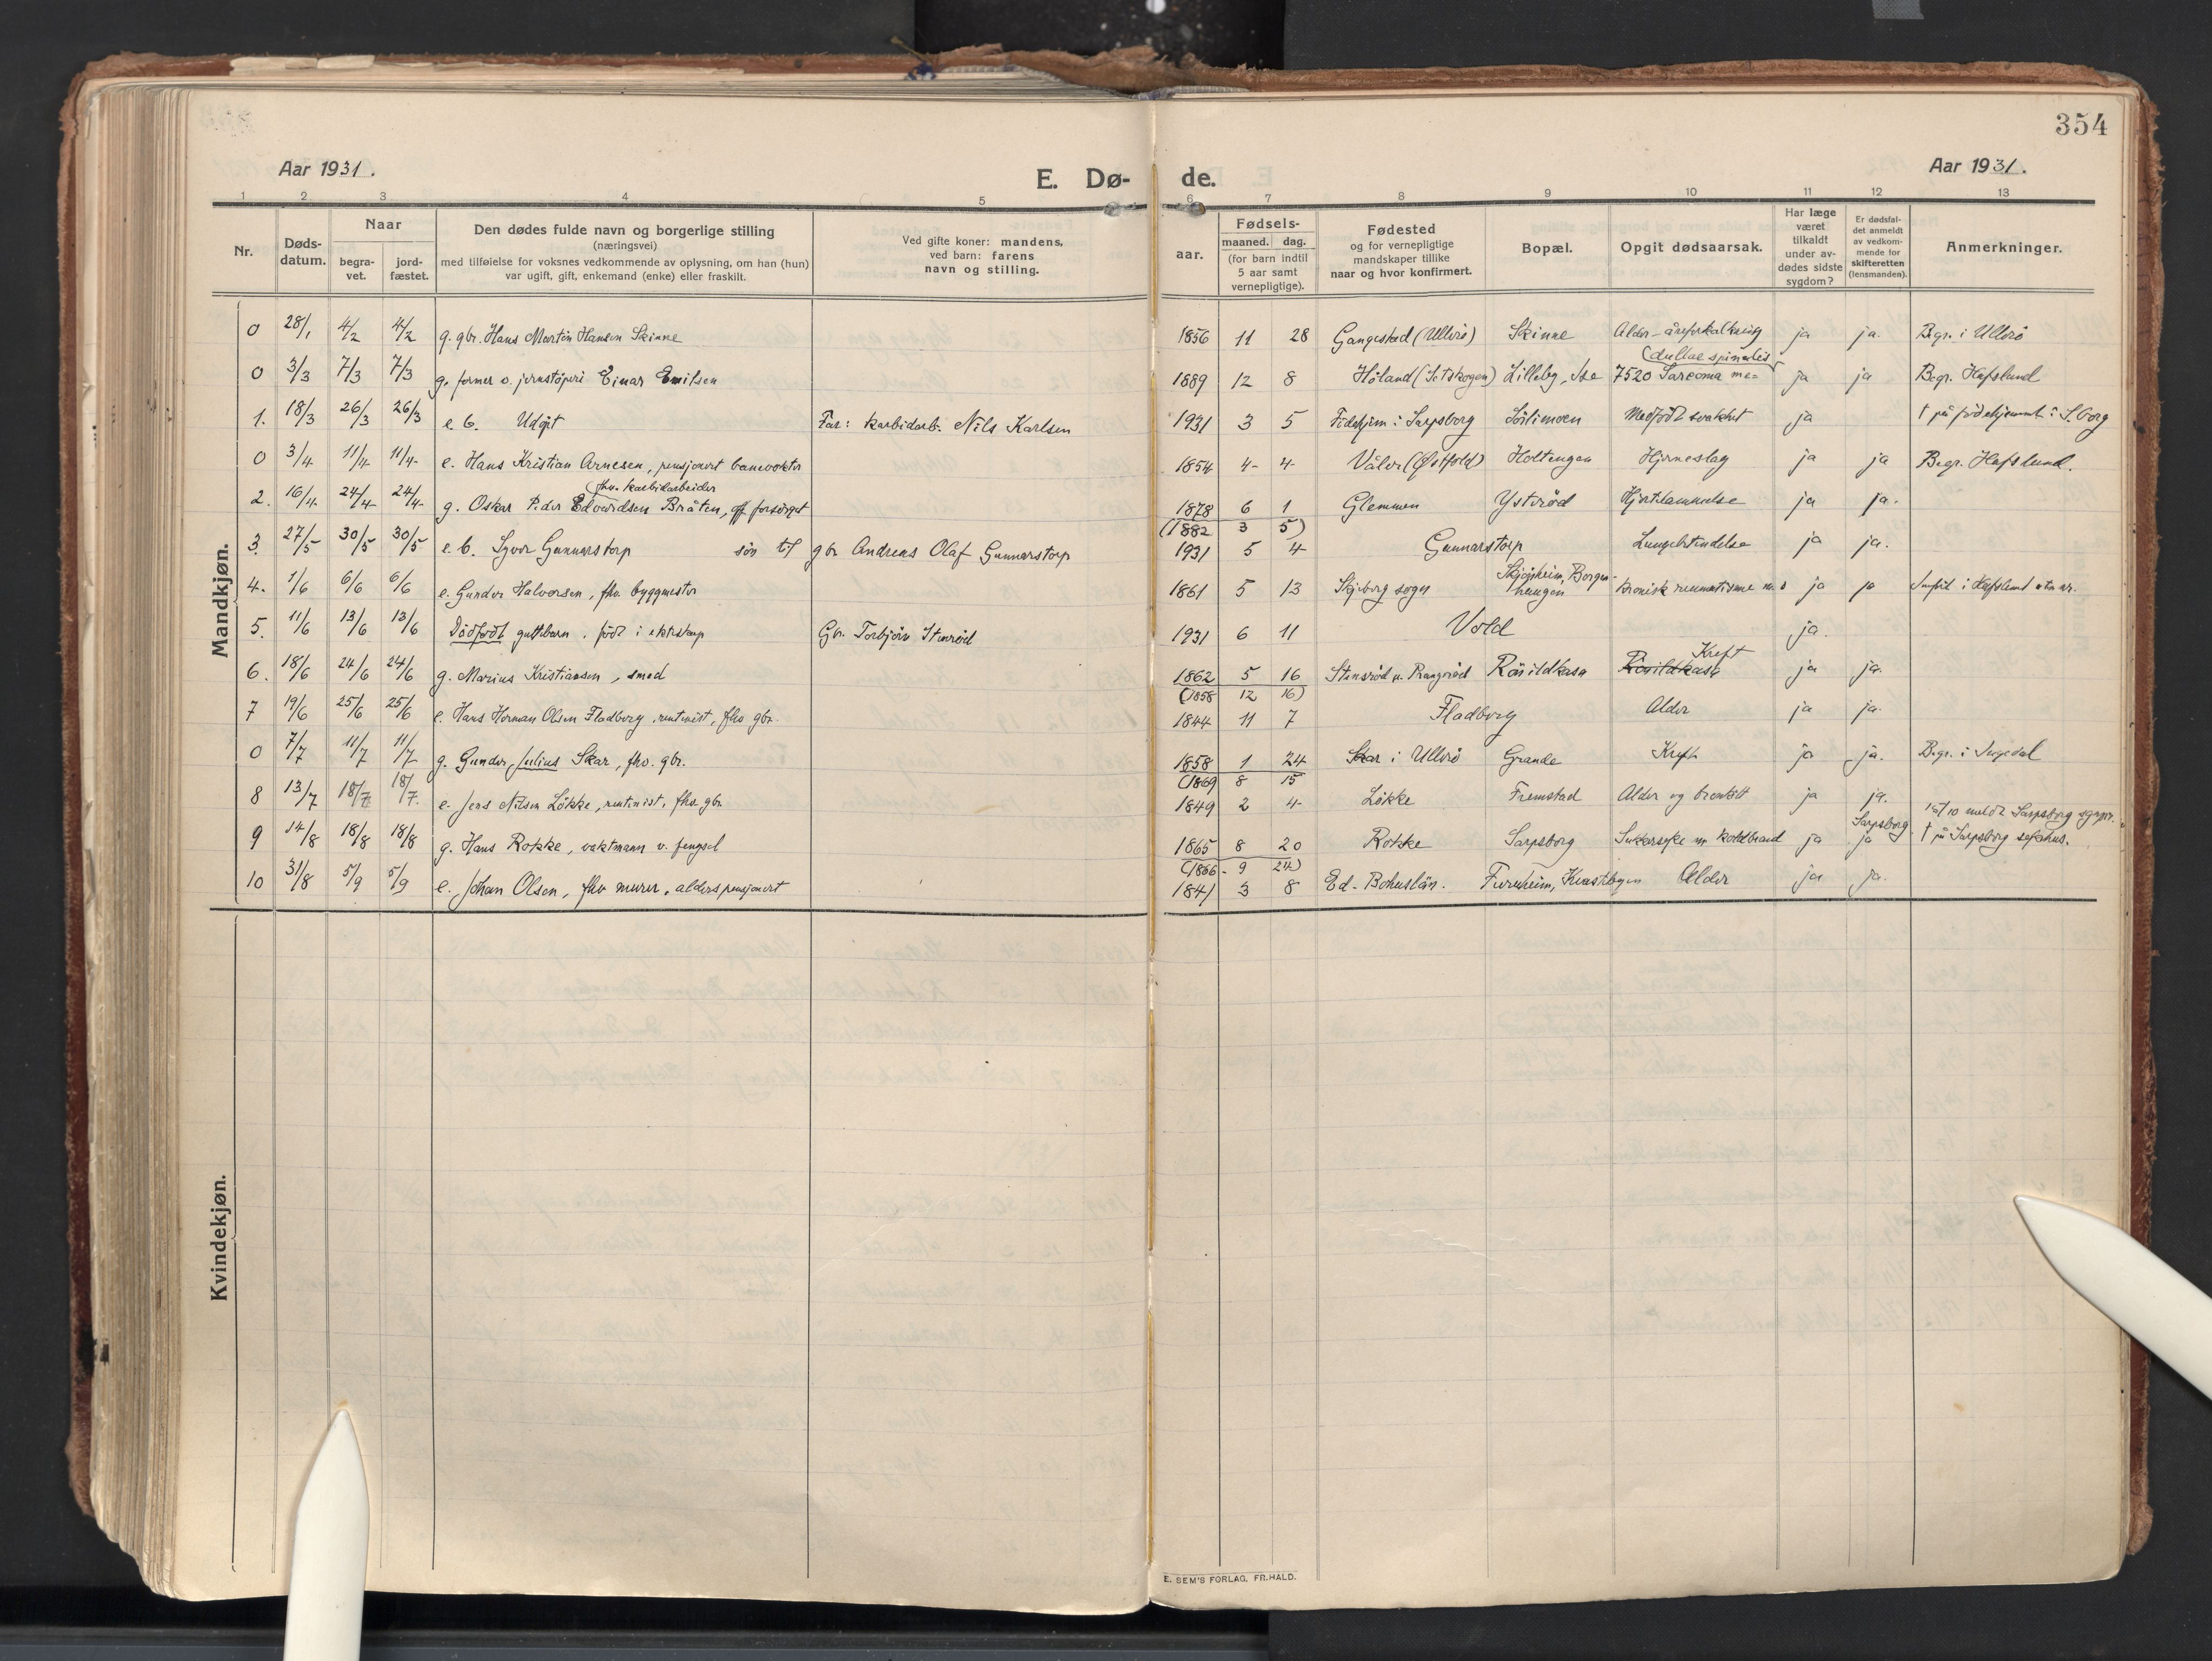 354
Aar 1931. E. Dø- de. Aar 1931.
1 2 3 4 5 6 7 8 9 10 11 12 13
Nr.
Døds-
datum.
Naar
begra-
vet.
jord-
fæstet.
Den dødes fulde navn og borgerlige stilling
(næringsvei)
med tilføielse for voksnes vedkommende av oplysning, om han (hun)
var ugift, gift, enkemand (enke) eller fraskilt.
Ved gifte koner: mandens,
ved barn: farens
navn og stilling.
Fødsels-
aar.
maaned. dag.
(for barn indtil
5 aar samt
vernepligtige).
Fødested
og for vernepligtige
mandskaper tillike
naar og hvor konfirmert.
Bopæl.
Opgit dødsaarsak.
Har læge
været
tilkaldt
under av-
dødes sidste
sygdom?
Er dødsfal-
det anmeldt
av vedkom-
mende for
skifteretten
(lensmanden).
Anmerkninger.
Mandkjøn.
0 28/1 4/2 4/2 g. gbr. Hans Martin Hansen Skinne 1856 11 28 Gangestad (Ullerö) Skinne Alder - åreforkalkning ja ja. Begr. i Ullerö
(dullae spinalis
0 3/3 7/3 7/3 g. former v. jernstöperi Einar Emilsen 1889 12 8 Höland (Setskogen) Lilleby, Ise 7520 Sarcoma me= ja ja Begr. Hafslund
1. 18/3 26/3 26/3 e. b. Udöpt Far: karbidarb. Nils Karlsen 1931 3 5 Födehjem i Sarpsborg Sörlimoen Medfödt svakhet ja † på födehjemmet i S.borg
0 3/4 11/4 11/4 e. Hans Kristian Arnesen, pensjonert banevokter 1854 4 4 Våler (Östfold) Holtengen Hjerneslag ja ja Begr. Hafslund.
fhv. karbidarbeider
2. 16/4 24/4 24/4 g. Oskar Peder Edvardsen Bråten, off forsörget 1878 6 1 Glemmen Ysteröd Hjertelammelse ja ja.
(1882 3 5)
3. 27/5 30/5 30/5 e. b. Syver Gunnarstorp sön til gbr Andreas Olaf Gunnarstorp 1931 5 4 Gunnarstorp Lungebetendelse ja ja.
4. 1/6 6/6 6/6 e. Gunder Halvorsen, fhv. byggmester 1861 5 13 Skjeberg sogn Borgen-haugen kronisk reumatisme ja ja
5. 11/6 13/6 13/6 Dödfödt guttebarn, födt i ekteskap Gbr. Torbjörn Stenröd 1931 6 11 Vold ja.
Kreft
6. 18/6 24/6 24/6 g. Marius Kristiansen, smed 1862 5 16 Stensröd Rösildkasa Röisildkasa ja ja.
(1858 12 16)
7 19/6 25/6 25/6 e. Hans Herman Olsen Fladberg, rentenist, fhv gbr. 1844 11 7 Fladberg Alder ja ja.
0 7/7 11/7 11/7 g. Gunder Julius Skar, fhv. gbr. 1858 1 24 Skar i Ullerö Grande Kreft ja ja. Begr. i Ingedal
(1869 8 15
8 13/7 18/7 18/7. e. Jens Nilsen Lökke, rentenist, fhv. gbr 1849 2 4 Lökke Fremstad Alder og bronkitt ja ja.
Sarpsborg
9 14/8 18/8 18/8 g. Hans Rokke, vaktmann v. fengsel 1865 8 20 Rokke Sarpsborg Sukkersyke m koldbrand ja ja † på Sarpsborg sykehus.
(1866 9 24)
10 31/8 5/9 5/9 e. Johan Olsen, fhv murer, alderspensjonert 1841 3 8 Ed - Bohuslän. Fureheim, Alder ja ja.
Kvindekjøn.
E. SEM'S FORLAG, FR.HALD.